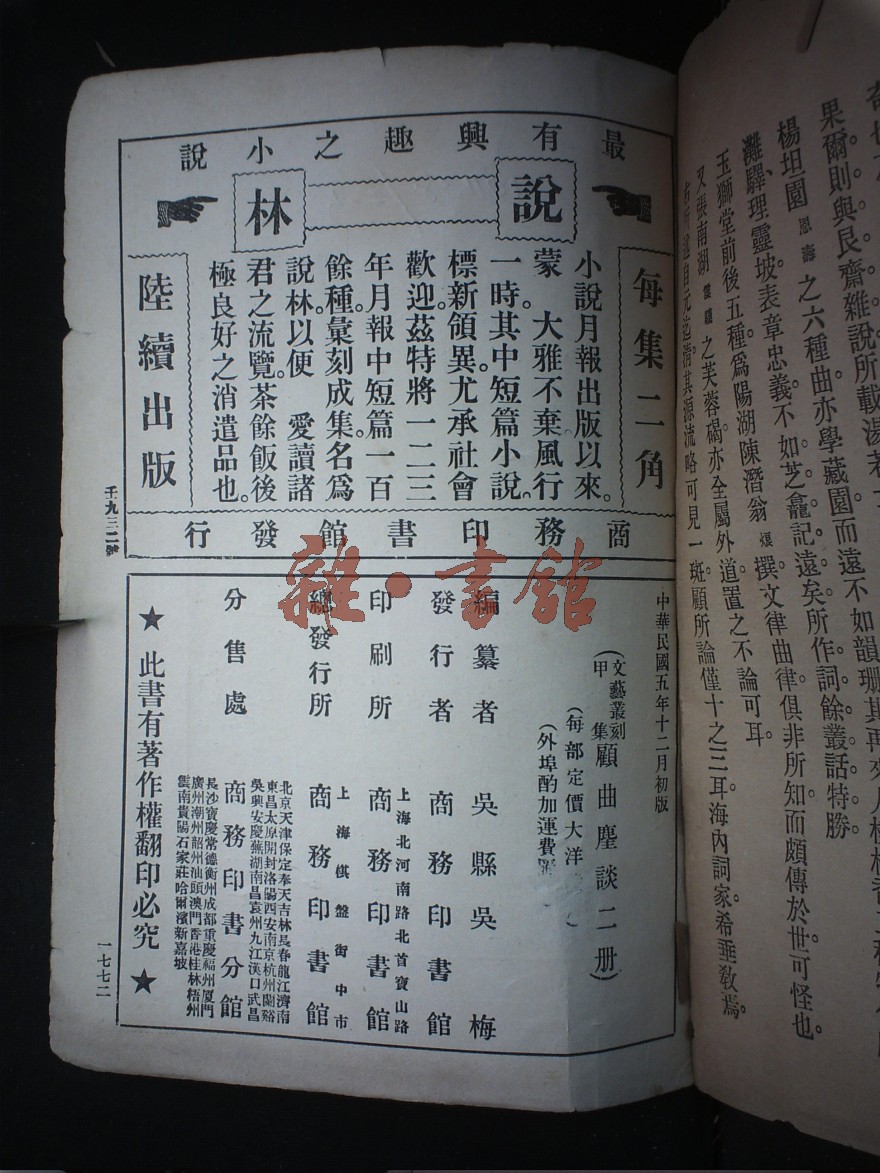 果爾則與艮齋雜說所載湯若士
楊坦園恩壽之六種曲亦學藏園而遠不如韻珊其再來人桂枝香
灘驛理靈坡表章忠義不如芝龕記遠矣所作詞餘叢話特勝
玉獅堂前後五種爲陽湖陳潛翁烺撰文律曲律俱非所知而頗傳於世可怪也
又張南湖雲驤之芙蓉碣亦全屬外道置之不論可耳
右所述自元迄清其源流略可見一斑顧所論僅十之三耳海內詞家希垂敎焉
最有興趣之小說
說林
每集二角
小說月報出版以來。
蒙 大雅不棄風行
一時。其中短篇小說。
標新領異尤承社會
歡迎茲特將一二三
年月報中短篇一百
餘種。彙刻成集。名爲
說林。以便 愛讀諸
君之流覽。茶餘飯後
極良好之消遣品也。
陸續出版
商務印書館發行
壬九三二號
中華民國五年十二月初版
(文藝叢刻甲集顧曲塵談二册)
(每部定價大洋
(外埠酌加運費
編纂者 吳縣吳梅
發行者 商務印書館
印刷所 上海北河南路北首寶山路 商務印書館
總發行所 上海棋盤街中市 商務印書館
分售處 商務印書分館
北京天津保定奉天吉林長春龍江濟南
東昌太原開封洛陽西安南京杭州蘭谿
吳興安慶蕪湖南昌袁州九江漢口武昌
長沙寶慶常德衡州成都重慶福州厦門
廣州潮州韶州汕頭澳門香港桂林梧州
雲南貴陽石家莊哈爾濱新嘉坡
★此書有著作權翻印必究★
一七七二
雜·書館